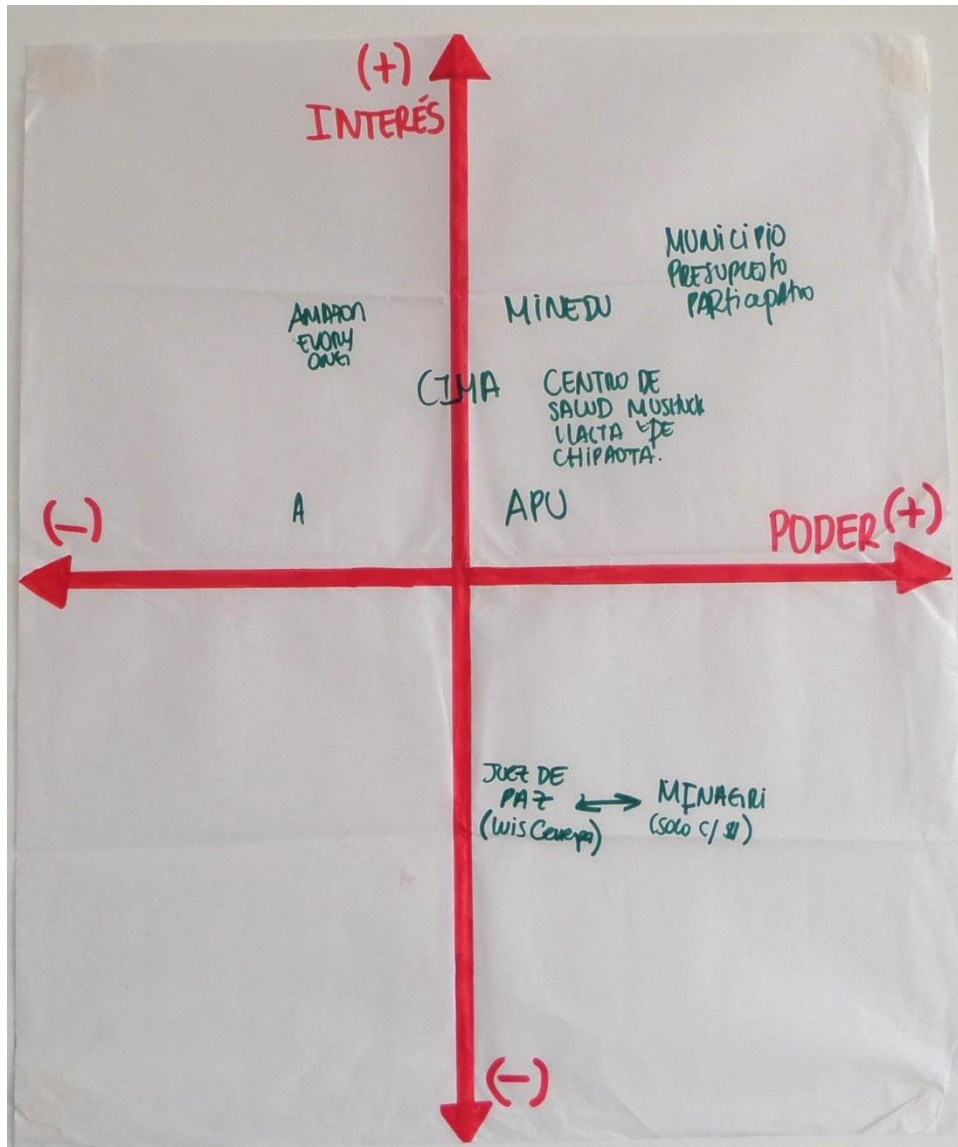 (+)
INTERÉS
MUNICIPIO
PRESUPUESTO
PARTICIPATIVO
AMAAON
EVORY
ONG
MINEDU
CIMA
CENTRO DE
SALUD MUSHUCK
LLACTA DE
CHIPAOTA.
A
APU
(-)
PODER (+)
JUEZ DE
PAZ
(LUIS
MINAGRI
(SOLO C/
(-)